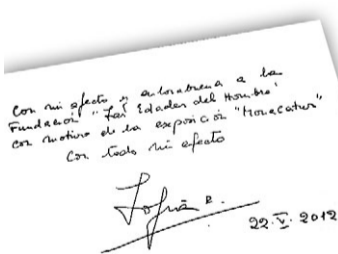 Con mi afecto y enhorabuena a la
Fundación "Las Edades del Hombre"
con motivo de la exposición "Monacatus"
Con todo mi afecto
Sofía R.
22.V.2012